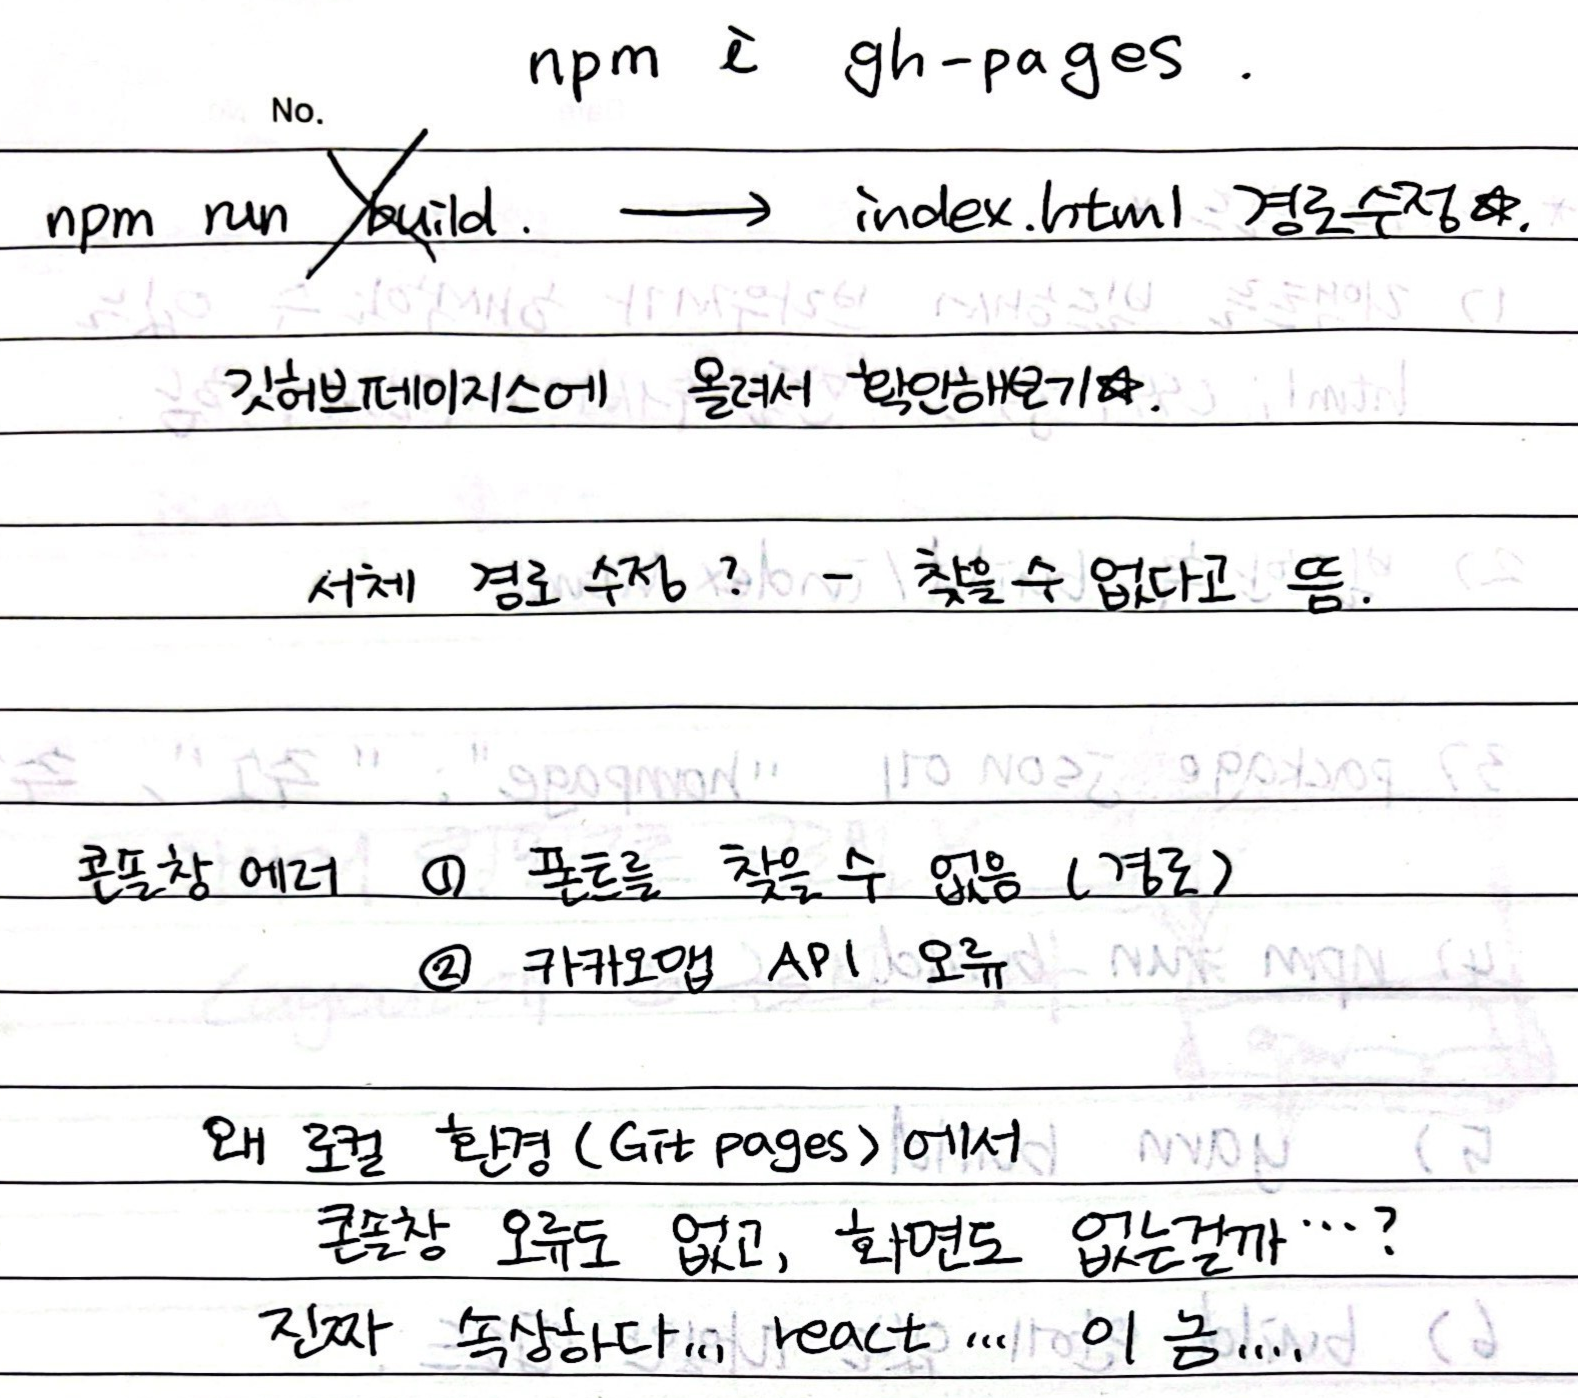 npm i gh-pages.
No.
npm run build. → index.html 경로수정☆.
깃허브페이지스에 올려서 확인해보기☆.
서체 경로 수정? - 찾을 수 없다고 뜸.
콘솔창 에러 ① 폰트를 찾을 수 없음 (경로)
② 카카오맵 API 오류
왜 로컬 환경(Git pages)에서
콘솔창 오류도 없고, 화면도 없는걸까...?
진짜 속상하다... react ... 이 놈....